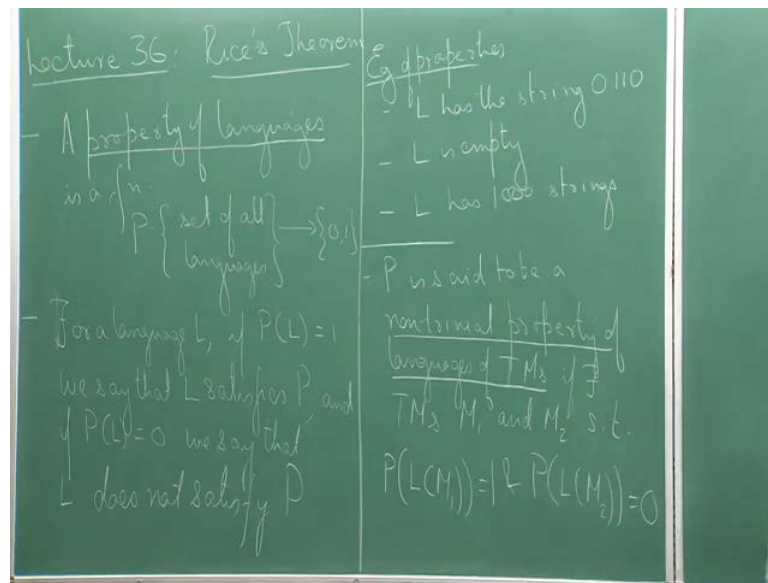 Lecture 36: Rice's Theorem
- A property of languages
is a fn.
P: { set of all languages } → {0,1}
- For a language L, if P(L) = 1
we say that L satisfies P, and
if P(L)=0 we say that
L does not satisfy P
Eg of properties
- L has the string 0110
- L is empty
- L has 1000 strings
- P is said to be a
non-trivial property of
languages of TMs if ∃
TMs M₁ and M₂ s.t.
P(L(M₁))=1 & P(L(M₂))=0